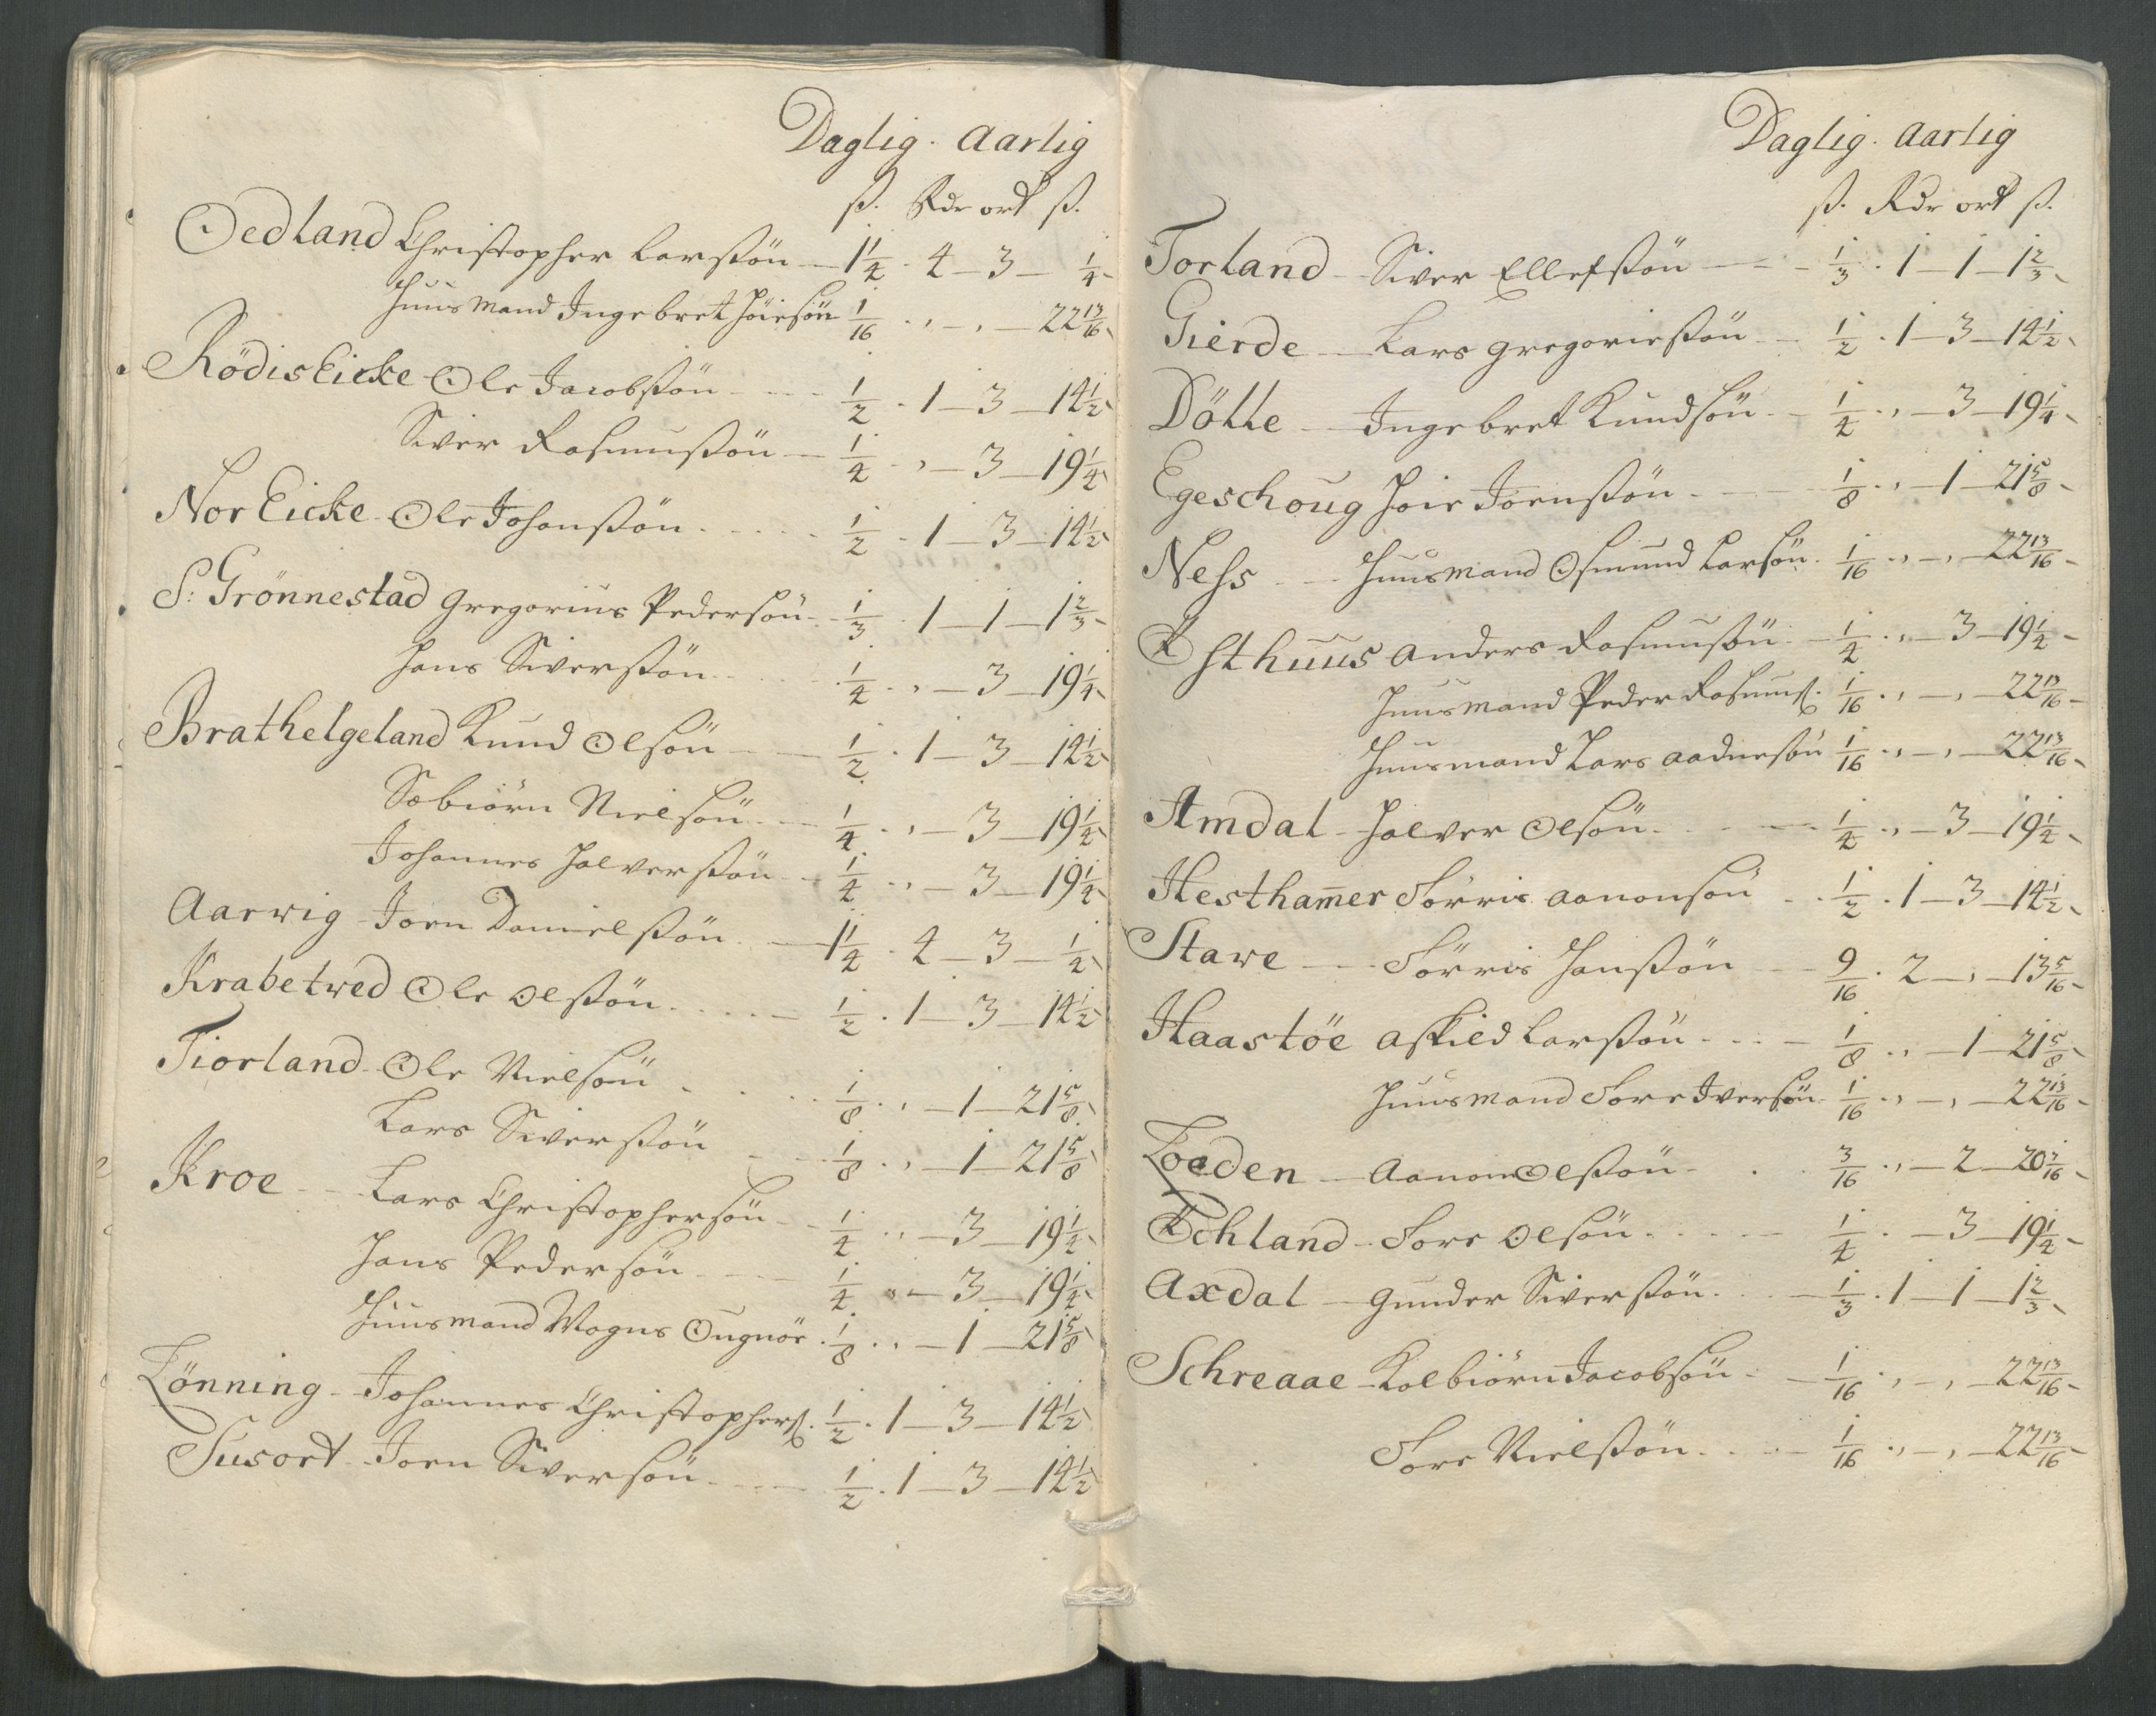 Daglig. Aarlig
ß. Rdr ort ß.
Oedland Christopher Larssön 1 1/4. 4 - 3 - 1/4
Huusmand Ingebret Höiesön 1/16. „ - „ - 22 13/16
Rödis Eicke Ole Jacobssön 1/2. 1 - 3 - 14 1/2
Siver Rasmussön 1/4. „ - 3 - 19 1/4
Nor Eicke Ole Johanssön 1/2. 1 - 3 - 14 1/2
S: Grönnestad Gregorius Pedersön 1/3. 1 - 1 - 1 2/3
Hans Siverssön 1/4. „ - 3 - 19 1/4
Brathelgeland Knud Olsön 1/2. 1 - 3 - 14 1/2
Sæbiörn Nielsön 1/4. „ - 3 - 19 1/4
Johannes Halverssön 1/4. „ - 3 - 19 1/4
Aarvig Joen Danielssön 1 1/4. 4 - 3 - 1/4
Krabetved Ole Olssön 1/2. 1 - 3 - 14 1/2
Tiorland Ole Nielsön 1/8. „ - 1 - 21 5/8
Lars Siverssön 1/8. „ - 1 - 21 5/8
Kroe Lars Christophersön 1/4. „ - 3 - 19 1/4
Hans Pedersön 1/4 „ - 3 - 19 1/4
Huusmand Mogns 1/8. „ - 1 - 21 5/8
Lönning Johannes Christophers. 1/2. 1 - 3 - 14 1/2
Susort Joen Siversön 1/2. 1 - 3 - 14 1/2
Daglig. Aarlig
ß. Rdr ort ß.
Torland Siver Ellefssön 1/3. 1 - 1 - 1 2/3
Gierde Lars Gregoriessön 1/2. 1 - 3 - 14 1/2
Dötle Ingebret Knudsön 1/4. „ - 3 - 19 1/4
Egeschoug Hoie Joenssön 1/8. „ - 1 - 21 5/8
Nehs Huusmand Osmund Larsön 1/16. „ - „ - 22 13/16
Østhuus Anders Rasmusön 1/4. „ - 3 - 19 1/4
Huusmand Peder Rasmus. 1/16. „ - „ - 22 13/16
Huusmand Lars Aadnesön 1/16. „ - „ - 22 13/16
Amdal Halver Olsön 1/4. „ - 3 - 19 1/4
Hestham̅er Torris Aanonsön 1/2. 1 - 3 - 14 1/2
Stave Törris Hanssön 9/16. 2 - „ - 13 5/16
Haastöe Aschied Larssön 1/8. „ - 1 - 21 5/8
Huusmand Tore Iversön 1/16. „ - „ - 22 13/16
Loeden Aanon Olssön 3/16. „ - 2 - 20 7/16
Echland Tore Olsön 1/4. - 3 - 19 1/4
Axdal Gunder Siverssön 1/3. 1 - 1 - 1 2/3
Schreaae Kolbiörn Jacobsön 1/16. „ - „ - 22 13/16
Tore Nielssön 1/16. „ - „ - 22 13/16